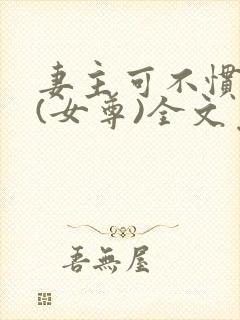 妻主可不慣
(女尊)全文
吾無屋